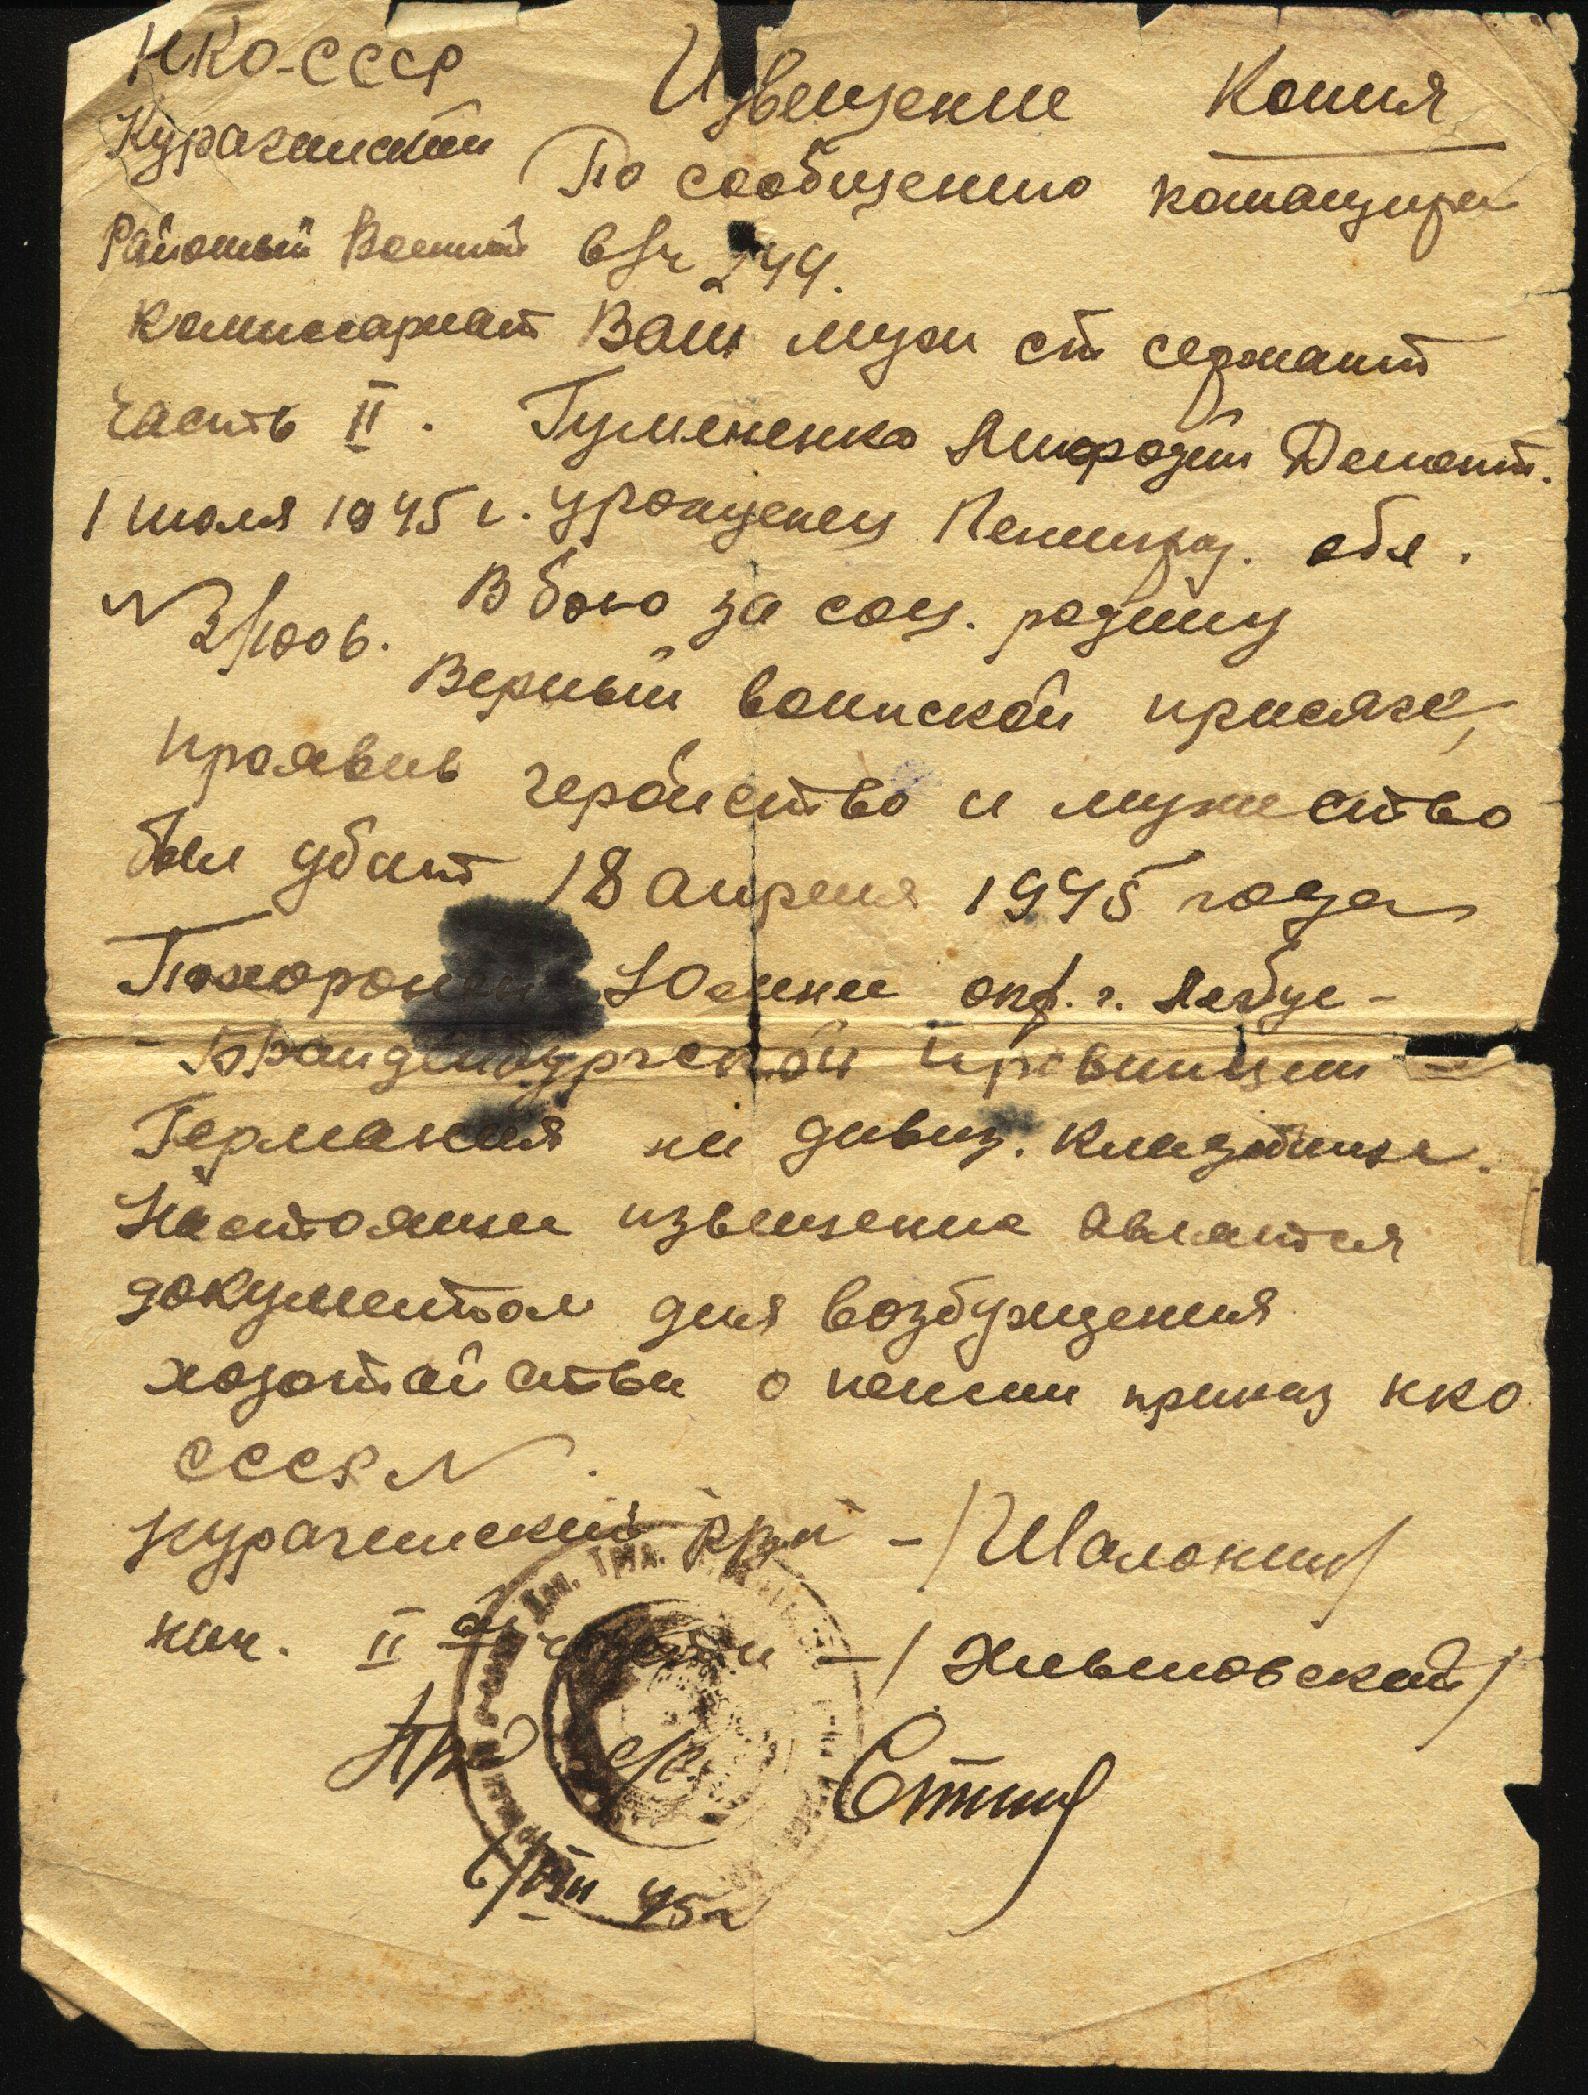 НКО-СССР Извещение Копия
Курагинский По сообщению командира
Районый Военный в/ч 244.
комиссариат Ваш муж ст сержант
часть II. Гумененко Демент.
1 июля 1945 г. уроженец Ленинград. обл.
N 2/1006. В бою за соц. родину
Верный воинской присяге,
проявив геройство и мужество
был убит 18 апреля 1945 года
Похоронен окр. г. Лебус-
-Бранденбургской провинции-
Германия на дивиз. кладбище.
Настоящее извещение является
документом для возбуждения
ходотайства о пенсии приказ НКО
СССР N .
Курагинский РВК -/Шалонин/
нач. II ой части -/Хильмовский/
Пред с/с
6/VIII 45 г